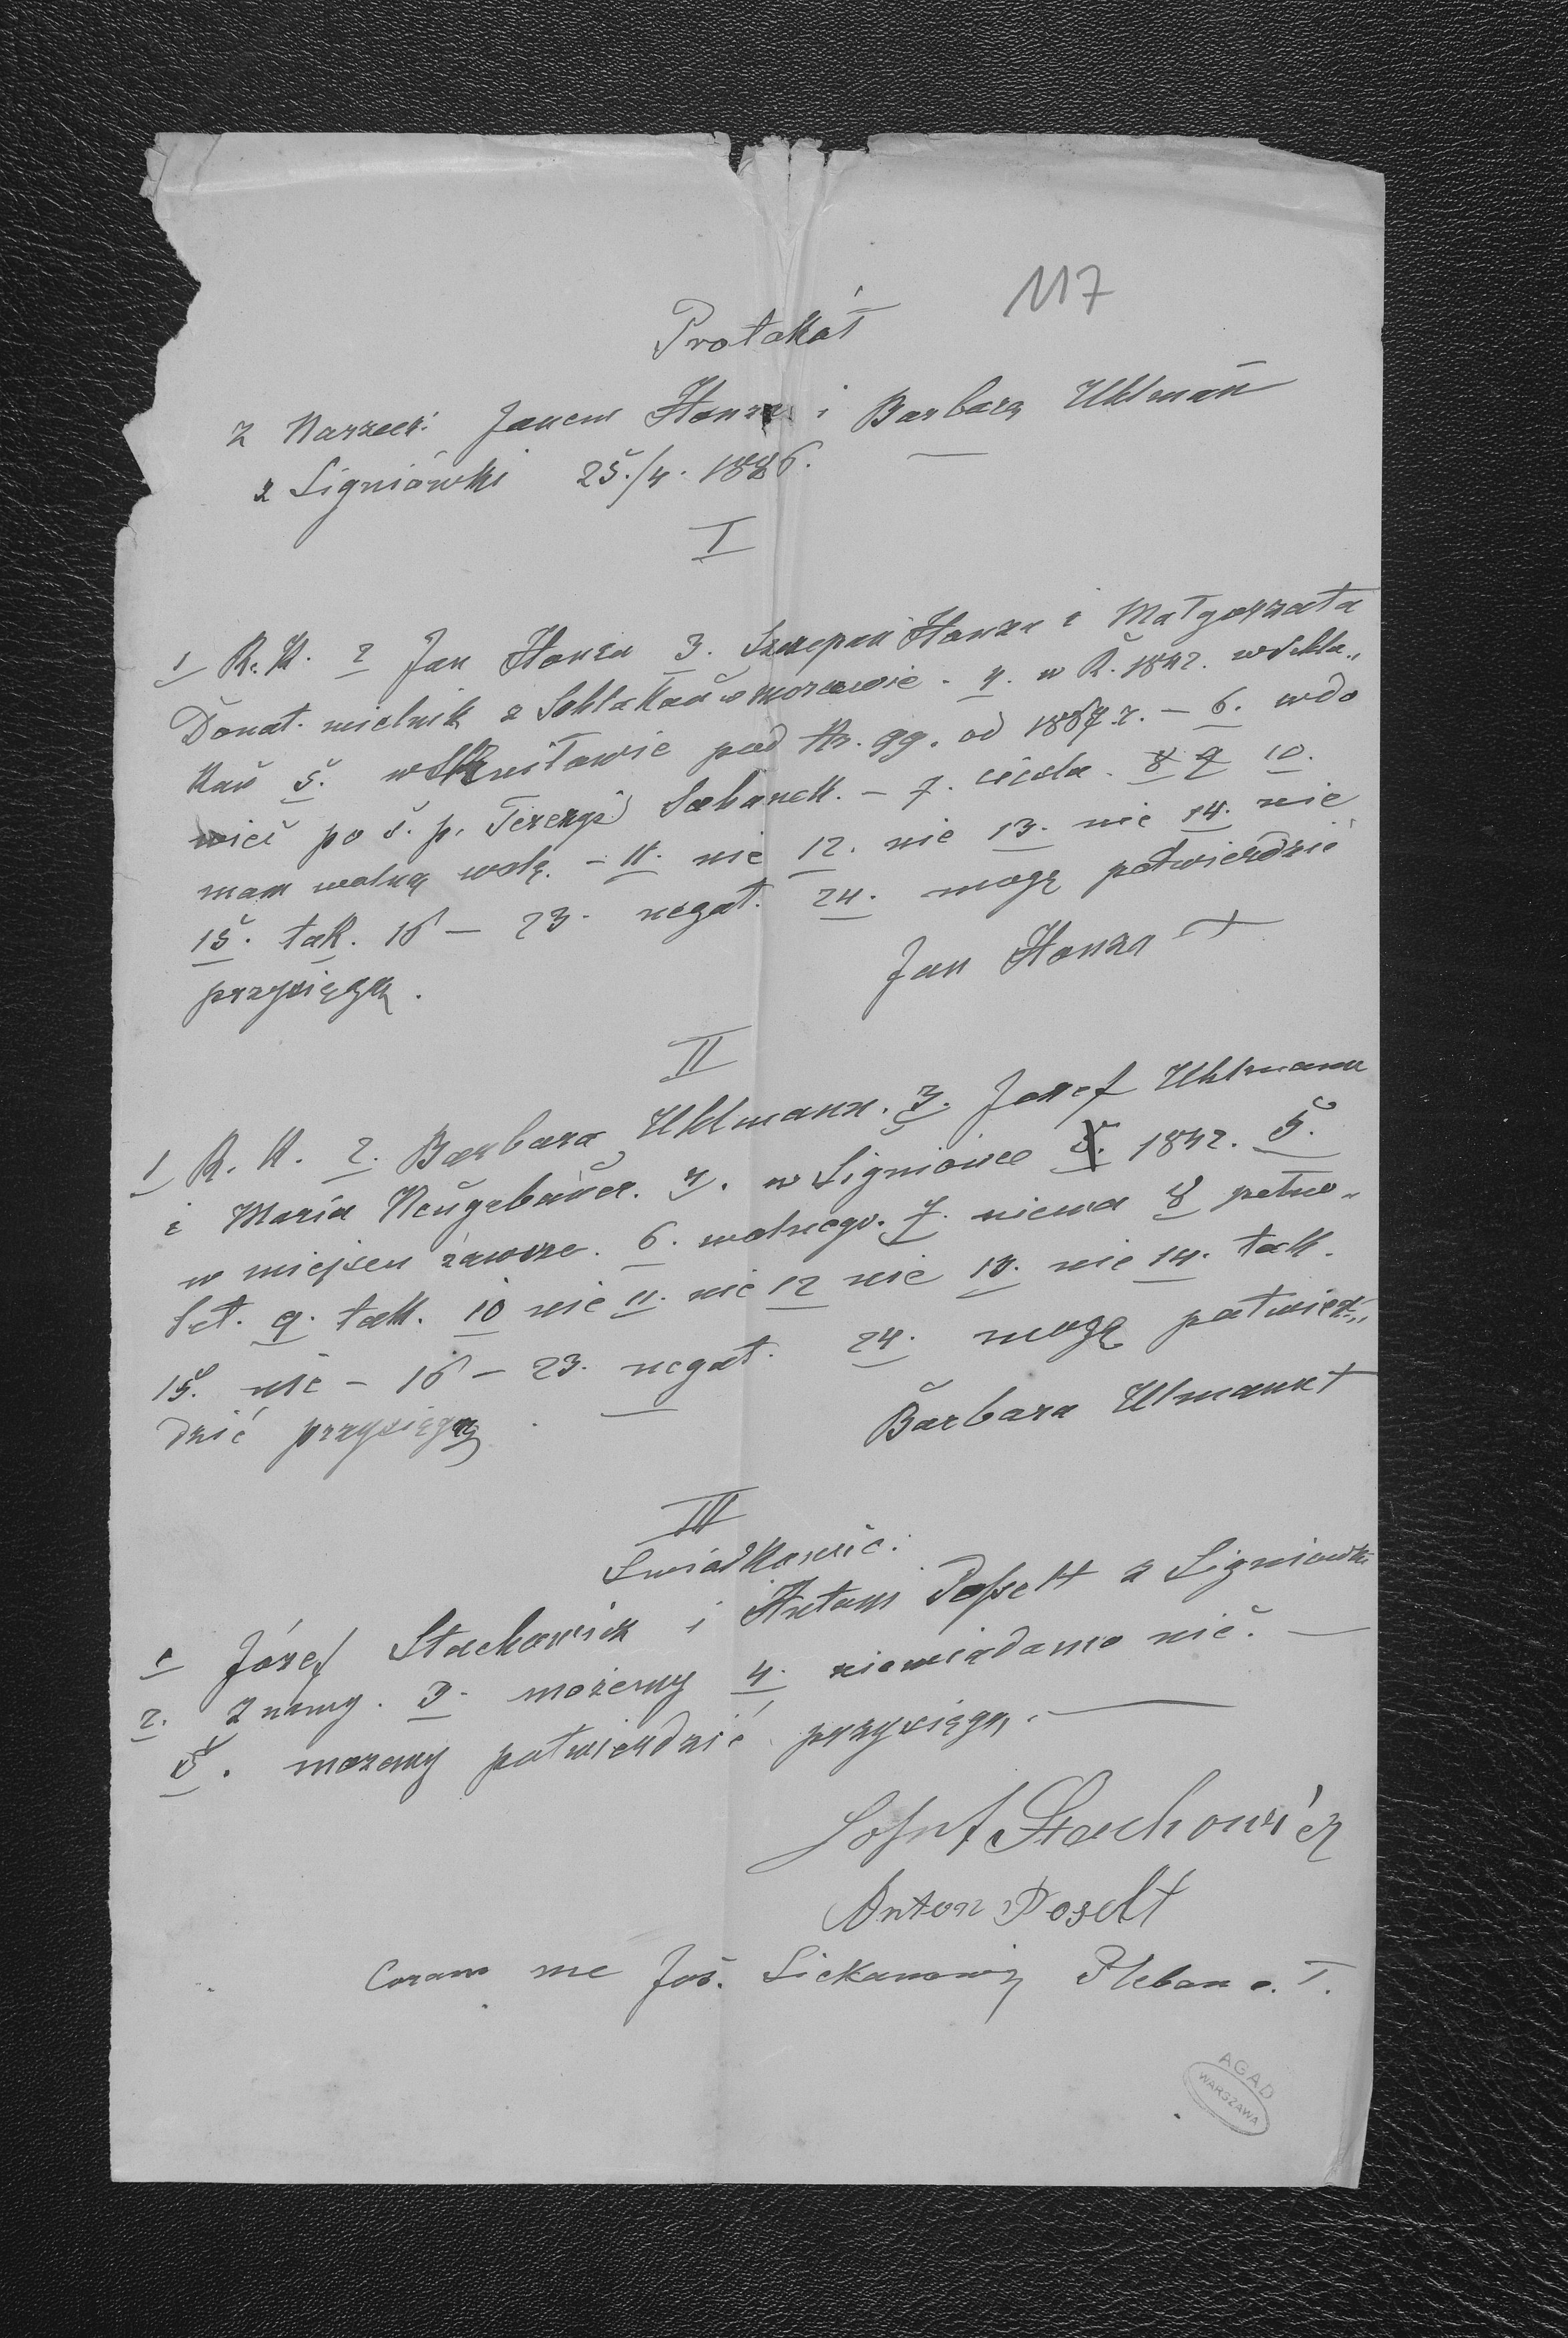 117
Protokół
z Narzecz: Janem Honza i Barbarą Uhlmañ
z Ligniówki 25./4. 1886.
I
1 R.K. 2 Jan Honza 3. Szczepan Honza i Małgorzata
Donat. mielnik z w Morawie. 4. w R. 1842.
5. pod Nr. 99. od r. – 6. wdo
wieć po ś. p. Terezyi – 7. cieśla. 8 9 10.
mam wolną wolę. – 11. nie 12. nie 13. nie 14. nie
15. tak. 16 – 23. negat. 24. mogę potwierdzić
przysięgą.
Jan Honza +
II
1 R. K. 2. Barbara Uhlmann. 3. Josef Uhlmann
i Maria Neugebauer. 4. w Ligniowce 1842. 5.
w miejscu zawsze. 6. wolnego. 7. niema 8 pełno„
let. 9. tak. 10 nie 11. nie 12 nie 13. nie 14. tak.
15. nie – 16 – 23. negat. 24. mogę potwier„
dzić przysięgą.
Barbara Ulmann +
III
Swiadkowie.
1 Józef Stachowicz i Antoni Poselt z Ligniowki
2. Znamy. 3. możemy 4. niewiadamo nić.
5. możemy potwierdzić przysięgą.
Josef Stachowicz
Anton Poselt
Coram me Joś. Pleban o. T.
AGAD
WARSZAWA